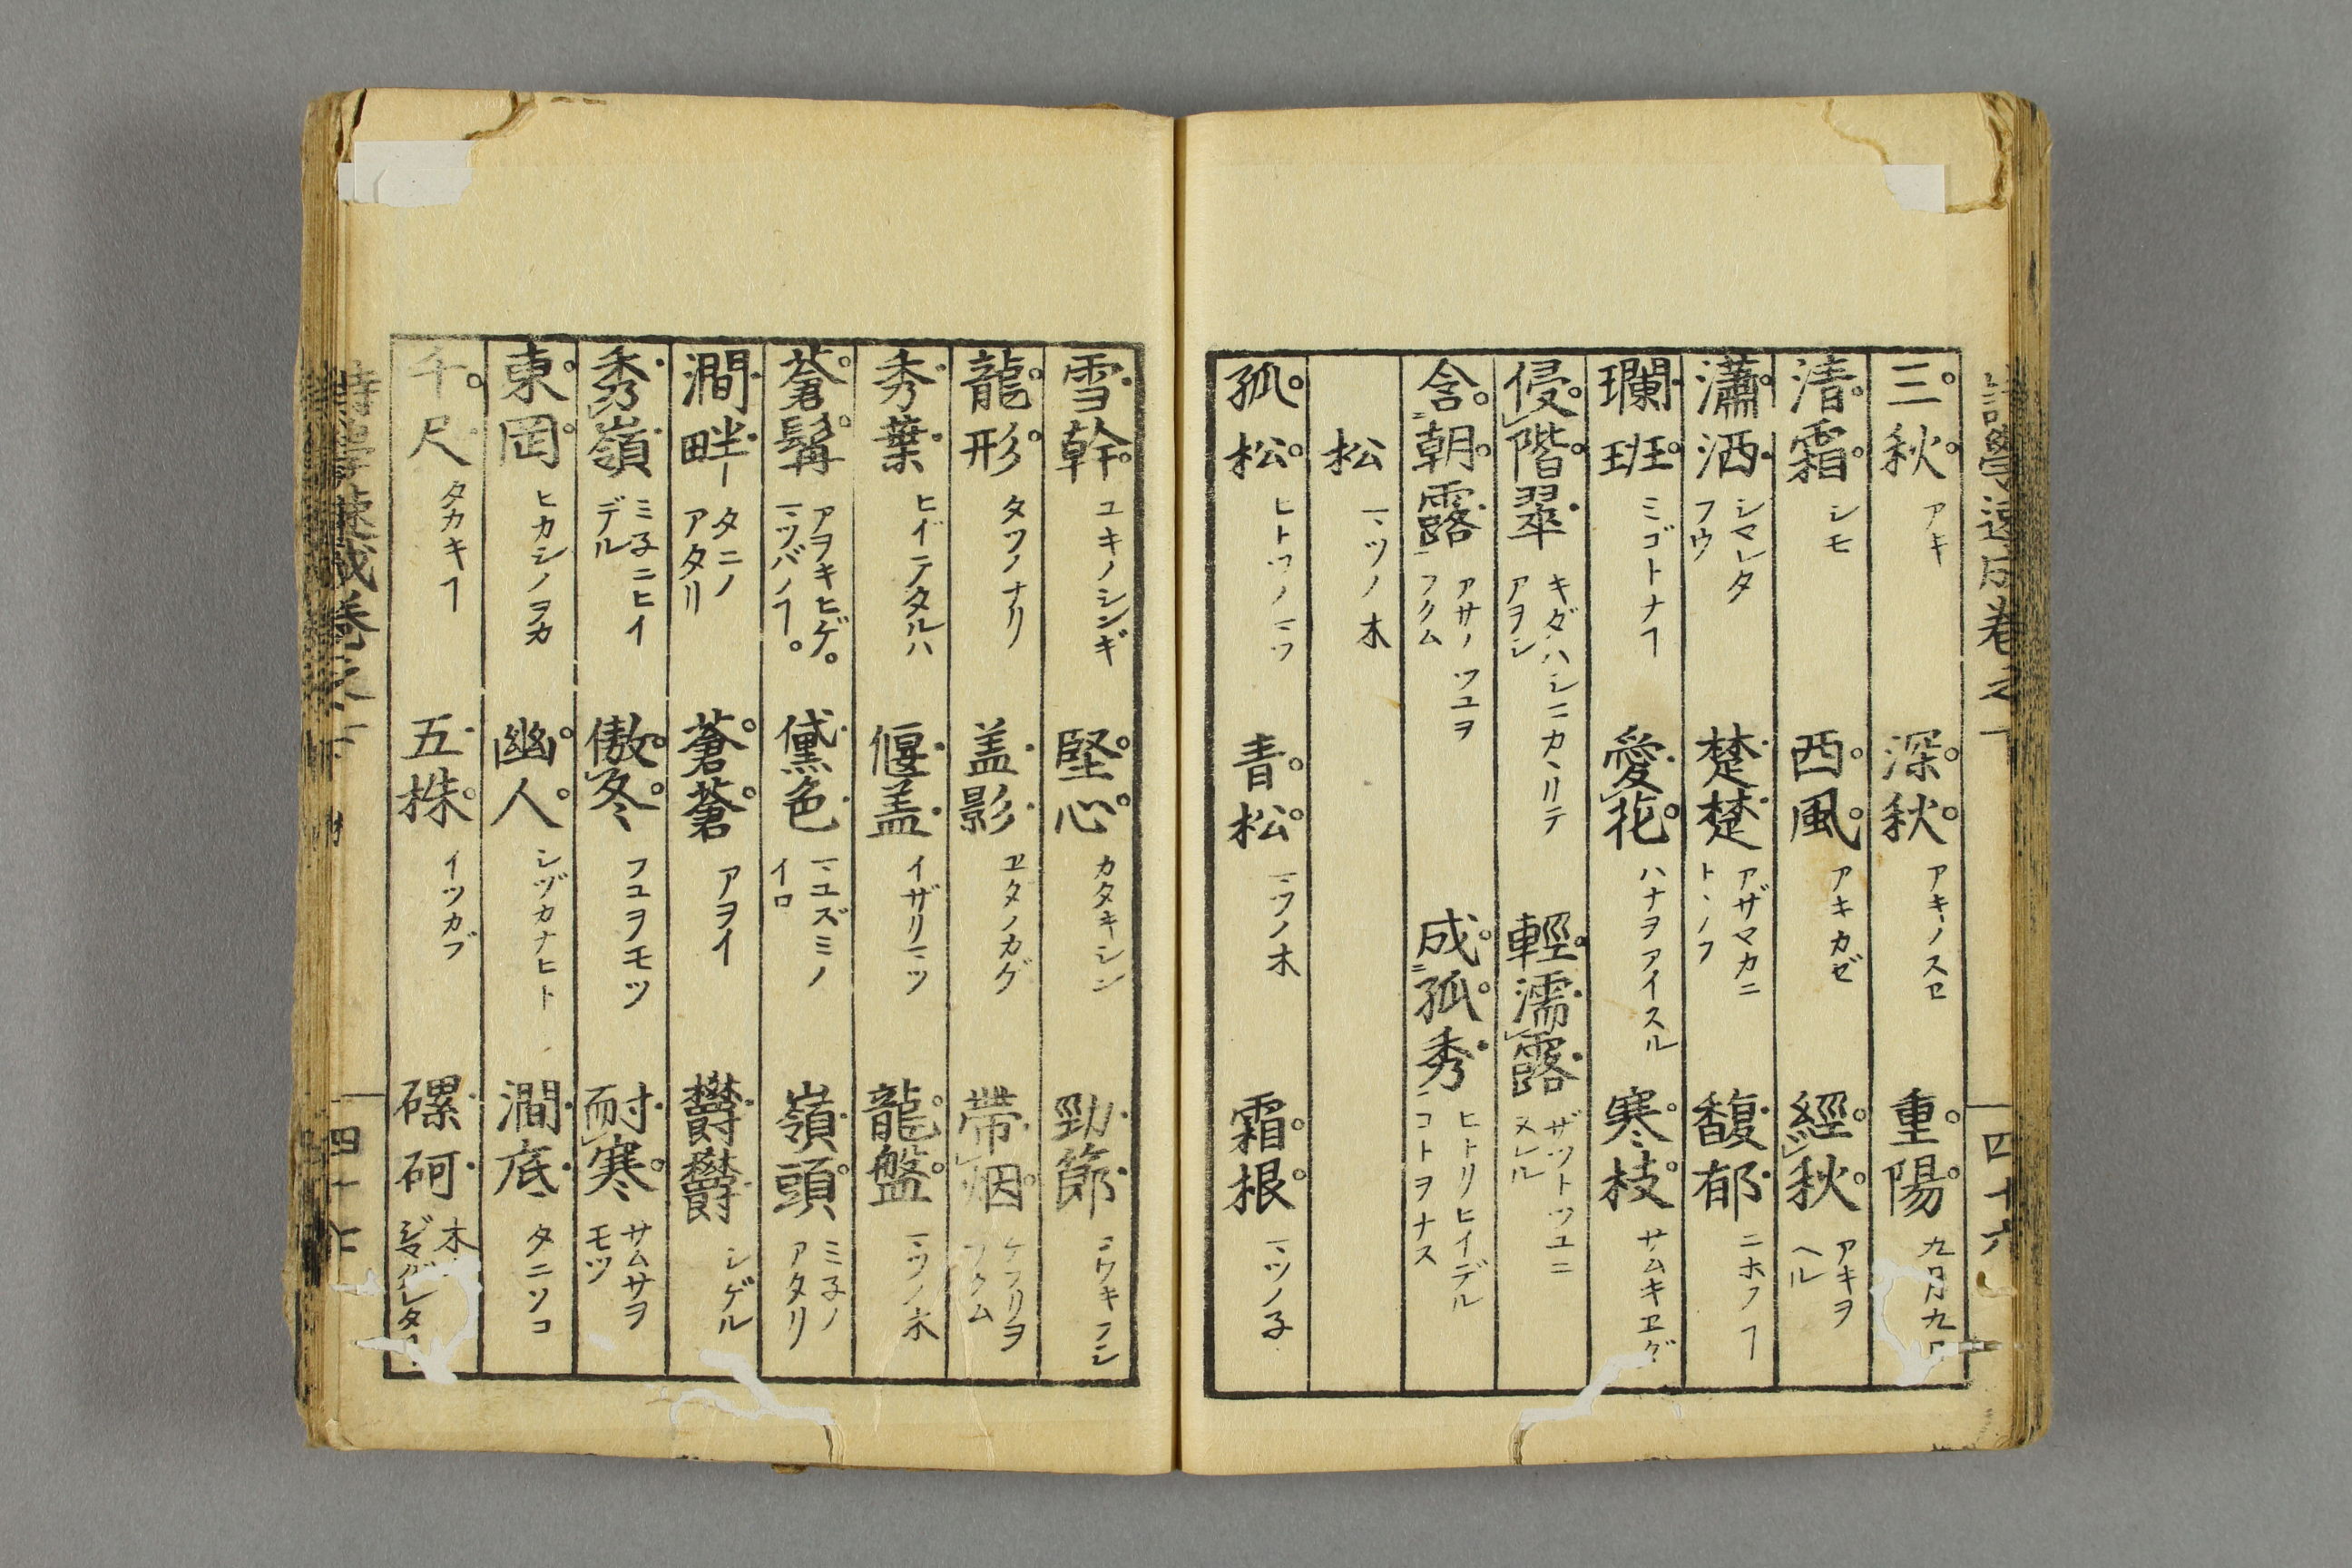 三秋 アキ 深秋 アキノスヱ 重陽 九月九日
清霜 シモ 西風 アキカゼ 經秋 アキヲヘル
瀟洒 シマレタフウ 楚楚 アザマカニトヽノフ 馥郁 ニホフヿ
斕班 ミゴトナヿ 愛花 ハナヲアイスル 寒枝 サムキヱダ
侵階翠 キダハシニカヽリテアヲシ 輕濡露 ザツトツユニヌレル
含朝露 アサノツユヲフクム 成孤秀 ヒトリヒイデルコトヲナス
松 マツノ木
孤松 ヒトツノマツ 青松 マツノ木 霜根 マツノ子
雪幹 ユキノシンギ 堅心 カタキシン 勁節 コワキフシ
龍形 タツノナリ 盖影 ヱダノカゲ 帶烟 ケフリヲフクム
秀葉 ヒイテタルハ 偃盖 イザリマツ 龍盤 マツノ木
蒼髯 アヲキヒゲ。マツバノヿ。 黛色 マユズミノイロ 嶺頭 ミ子ノアタリ
澗畔 タニノアタリ 蒼蒼 アヲイ 欝欝 シゲル
秀嶺 ミ子ニヒイデル 傲冬 フユヲモツ 耐寒 サムサヲモツ
東岡 ヒカシノヲカ 幽人 シヅカナヒト 澗底 タニソコ
千尺 タカキヿ 五株 イツカブ 磥砢
詩學速成卷之下 四十六
詩學速成卷之下 四十七